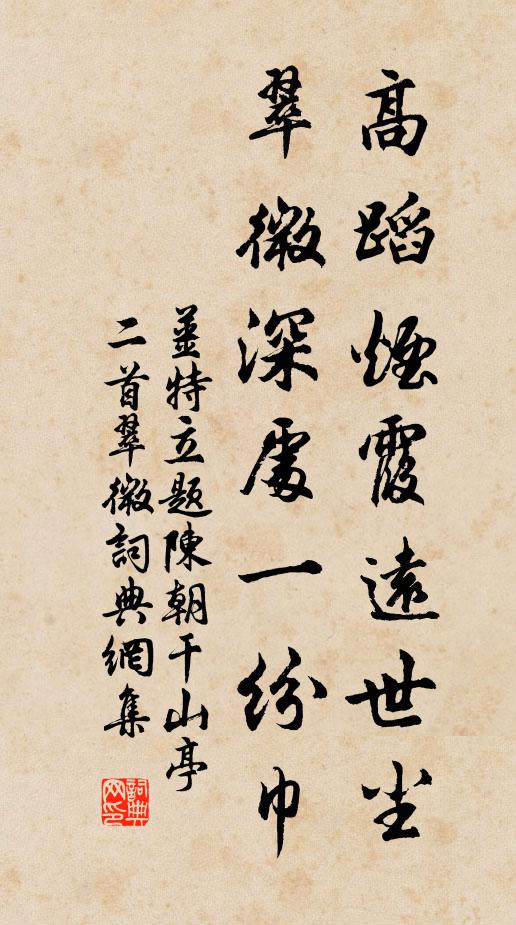 高蹈煙霞遠世尘
翠微深處一紛巾
薑特立題陳朝干山亭
二首翠微詞典網集
詞典网印